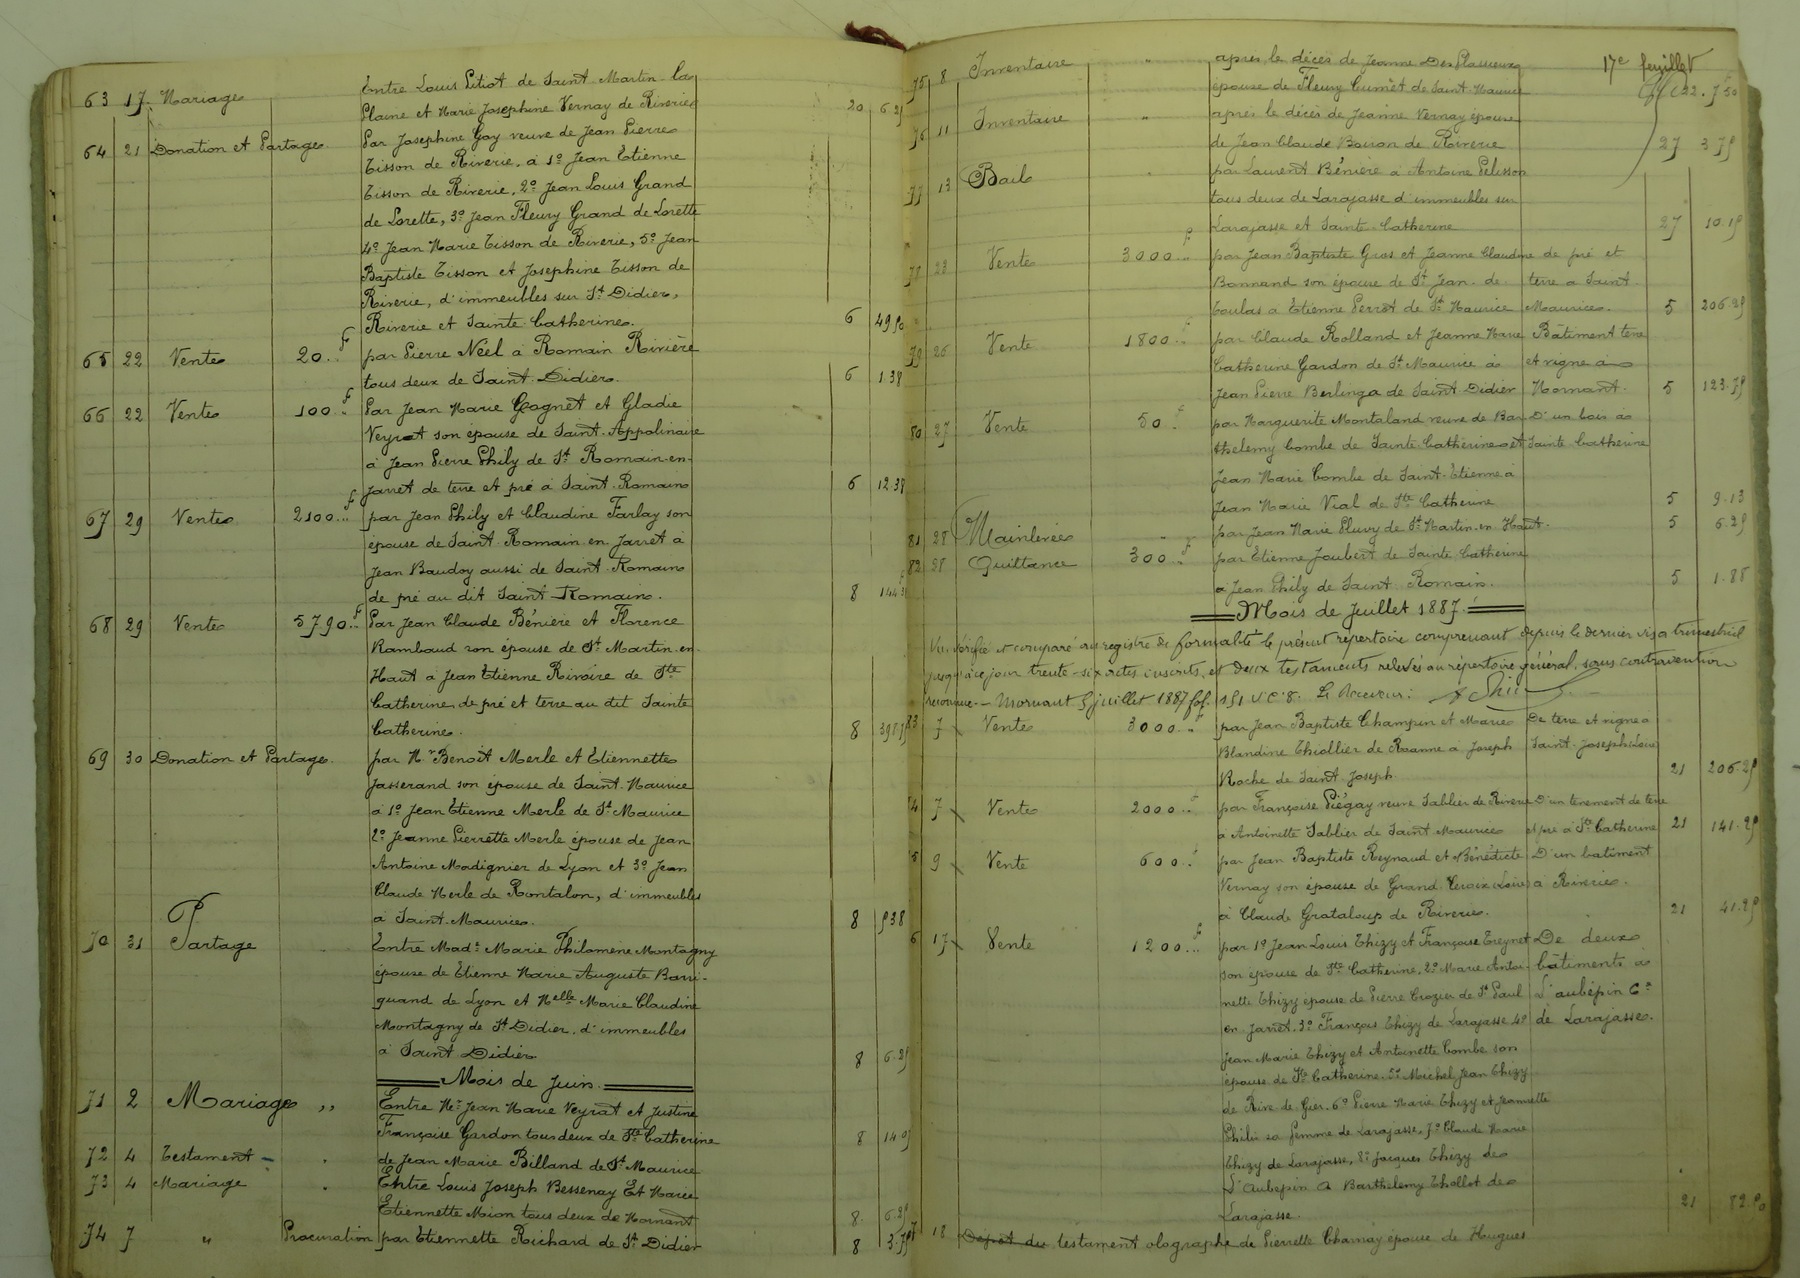 63 17. Mariage Entre Louis Pitiot de Saint-Martin-la
Plaine et Marie Josephine Vernay de Riverie 20 6.25
64 21 Donation et Partage Par Josephine Goy veuve de Jean Pierre
Tisson de Riverie, à 1º Jean Etienne
Tisson de Riverie, 2º Jean Louis Grand
de Lorette, 3º Jean Fleury Grand de Lorette
4º Jean Marie Tisson de Riverie, 5º Jean
Baptiste Tisson et Josephine Tisson de
Riverie, d'immeubles sur St Didier,
Riverie et Sainte Catherine. 6 49.50
65 22 Vente 20.. f par Pierre Néel à Romain Rivière
tous deux de Saint-Didier. 6 1.38
66 22 Vente 100.. f Par Jean Marie Gagnet et Gladie
Veyrat son épouse de Saint-Appolinaire
à Jean Pierre Phily de St Romain-en-
Jarret de terre et pré à Saint-Romain 6 12.38
67 29 Vente 2100.. f par Jean Phily et Claudine Farlay son
épouse de Saint-Romain-en-Jarret à
Jean Baudoy aussi de Saint-Romain
de pré au dit Saint-Romain. 8
68 29 Vente 5790.. f Par Jean Claude Bénière et Florence
Rambaud son épouse de St Martin-en-
Haut à Jean Etienne Rivoire de Ste
Catherine, de pré et terre au dit Sainte
Catherine. 8
69 30 Donation et Partage par Mr Benoît Merle et Etiennette
Jasserand son épouse de Saint-Maurice
à 1º Jean Etienne Merle de St Maurice
2º Jeanne Pierrette Merle épouse de Jean
Antoine Madignier de Lyon et 3º Jean
Claude Merle de Rontalon, d'immeubles
à Saint-Maurice. 8 538
70 31 Partage Entre Made Marie Philomène Montagny
épouse de Etienne Marie Auguste Barri-
quand de Lyon et Melle Marie Claudine
Montagny de St Didier, d'immeubles
à Saint Didier 8 6.25
Mois de Juin.
71 2 Mariage ,, Entre Mr Jean Marie Veyrat et Justine
Françoise Gardon tous deux de Ste Catherine 8 14.05
72 4 Testament de Jean Marie Billand de St Maurice
73 4 Mariage Entre Louis Joseph Bessenay Et Marie
Etiennette Mion tous deux de Mornant 8 6.25
74 7 " Procuration par Etiennette Richard de St Didier 8 3.75
17e feuillet
75 8 Inventaire " après le décès de Jeanne Des Plasseux
épouse de Fleury Cumet de Saint Maurice
76 11 Inventaire " après le décès de Jeanne Vernay épouse
de Jean Claude Boiron de Riverie 27 3.75
77 13 Bail " par Laurent Bénière à Antoine Pélisson
tous deux de Larajasse d'immeubles sur
Larajasse et Sainte-Catherine 27 10.15
78 23 Vente 3000.. f par Jean Baptiste Gros et Jeanne Claudine de pré et
Bonnand son épouse de St Jean-de terre à Saint-
Toulas à Etienne Perrot de St Maurice Maurice. 5 206.25
79 26 Vente 1800.. f par Claude Rolland et Jeanne Marie Bâtiment terre
Catherine Gardon de St Maurice à et vigne à
Jean Pierre Berlinga de Saint-Didier Mornant. 5 123.75
80 27 Vente 50.. f par Marguerite Montaland veuve de Bar- D'un bois à
thelemy Combe de Sainte Catherine et Sainte-Catherine
Jean Marie Combe de Saint-Etienne à
Jean Marie Vial de Ste Catherine 5 9.13
81 28 Mainlevée par Jean Marie Pluvy de St Martin-en-Haut. 5 6.25
82 28 Quittance 300.. f par Etienne Joubert de Sainte Catherine
à Jean Phily de Saint-Romain. 5 1.88
Mois de Juillet 1887.
Vu, vérifié et comparé au registre de formalité le présent répertoire comprenant depuis le dernier visa trimestriel
jusqu'à ce jour trente-six actes inscrits, et deux testaments relevés au répertoire général, sans contravention
reconnue. — Mornant 5 juillet 1887 fol. 151 V. C. 8. Le Receveur:
83 7 Vente 3000.. f par Jean Baptiste Champin et Marie De terre et vigne à
Blandine Thiollier de Roanne à Joseph Saint-Joseph Loire
Roche de Saint-Joseph. 21 206.25
84 7 Vente 2000.. f par Françoise Piégay veuve Sablier de Riverie D'un tenement de terre
à Antoinette Sablier de Saint Maurice et pré à Ste Catherine 21 141.25
85 9 Vente 600.. f par Jean Baptiste Reynaud et Bénédicte D'un batiment
Vernay son épouse de Grand-Croix (Loire) à Riverie.
à Claude Grataloup de Riverie. 21 41.25
86 17 Vente 1200.. f par 1º Jean Louis Thizy et Françoise Treynet De deux
son épouse de Ste Catherine, 2º Marie Antoi- bâtiments à
nette Thizy épouse de Pierre Crozier de St Paul L'aubépin Cne
en Jarret, 3º François Thizy de Larajasse 4º de Larajasse.
Jean Marie Thizy et Antoinette Combe son
épouse de Ste Catherine. 5º Michel Jean Thizy
de Rive de Gier. 6º Pierre Marie Thizy et Jeannette
Philis sa femme de Larajasse, 7º Claude Marie
Thizy de Larajasse, 8º Jacques Thizy de
L'Aubepin à Barthelemy Thollot de
Larajasse. 21 82.50
87 18 Dépôt du testament olographe de Pierrette Charnay épouse de Hugues